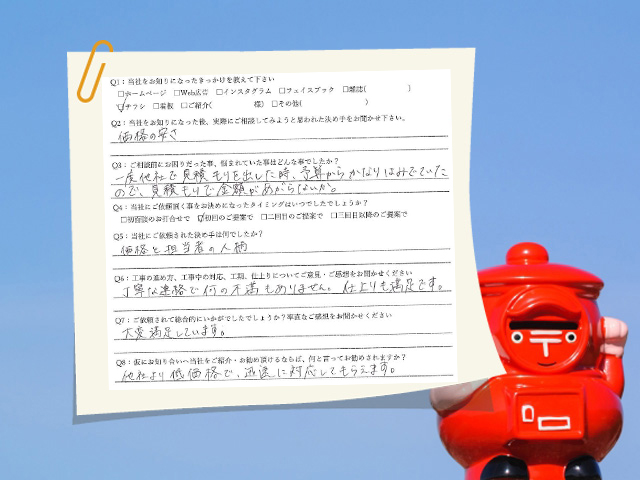 Q1：当社をお知りになったきっかけを教えて下さい
□ホームページ □Web広告 □インスタグラム □フェイスブック □雑誌( )
☑チラシ □看板 □ご紹介( 様) □その他( )
Q2：当社をお知りになった後、実際にご相談してみようと思われた決め手をお聞かせ下さい。
価格の安さ
Q3：ご相談前にお困りだった事、悩まれていた事はどんな事でしたか？
一度他社で見積もりを出した時、予算からかなりはみでていた
ので、見積もりで金額があがらないか。
Q4：当社にご依頼頂く事をお決めになったタイミングはいつでしたでしょうか？
□初面談のお打合せで ☑初回のご提案で □二回目のご提案で □三回目以降のご提案で
Q5：当社に依頼された決め手は何でしたか？
価格と担当者の人柄
Q6：工事の進め方、工事中の対応、工期、仕上りについてご意見・ご感想をお聞かせください
丁寧な連絡で何の不満もありません。仕上りも満足です。
Q7：ご依頼されて総合的にいかがでしたでしょうか？率直なご感想をお聞かせください
大変満足しています。
Q8：仮にお知り合いへ当社をご紹介・お勧め頂けるならば、何と言ってお勧めされますか？
他社より低価格で、迅速に対応してもらえます。